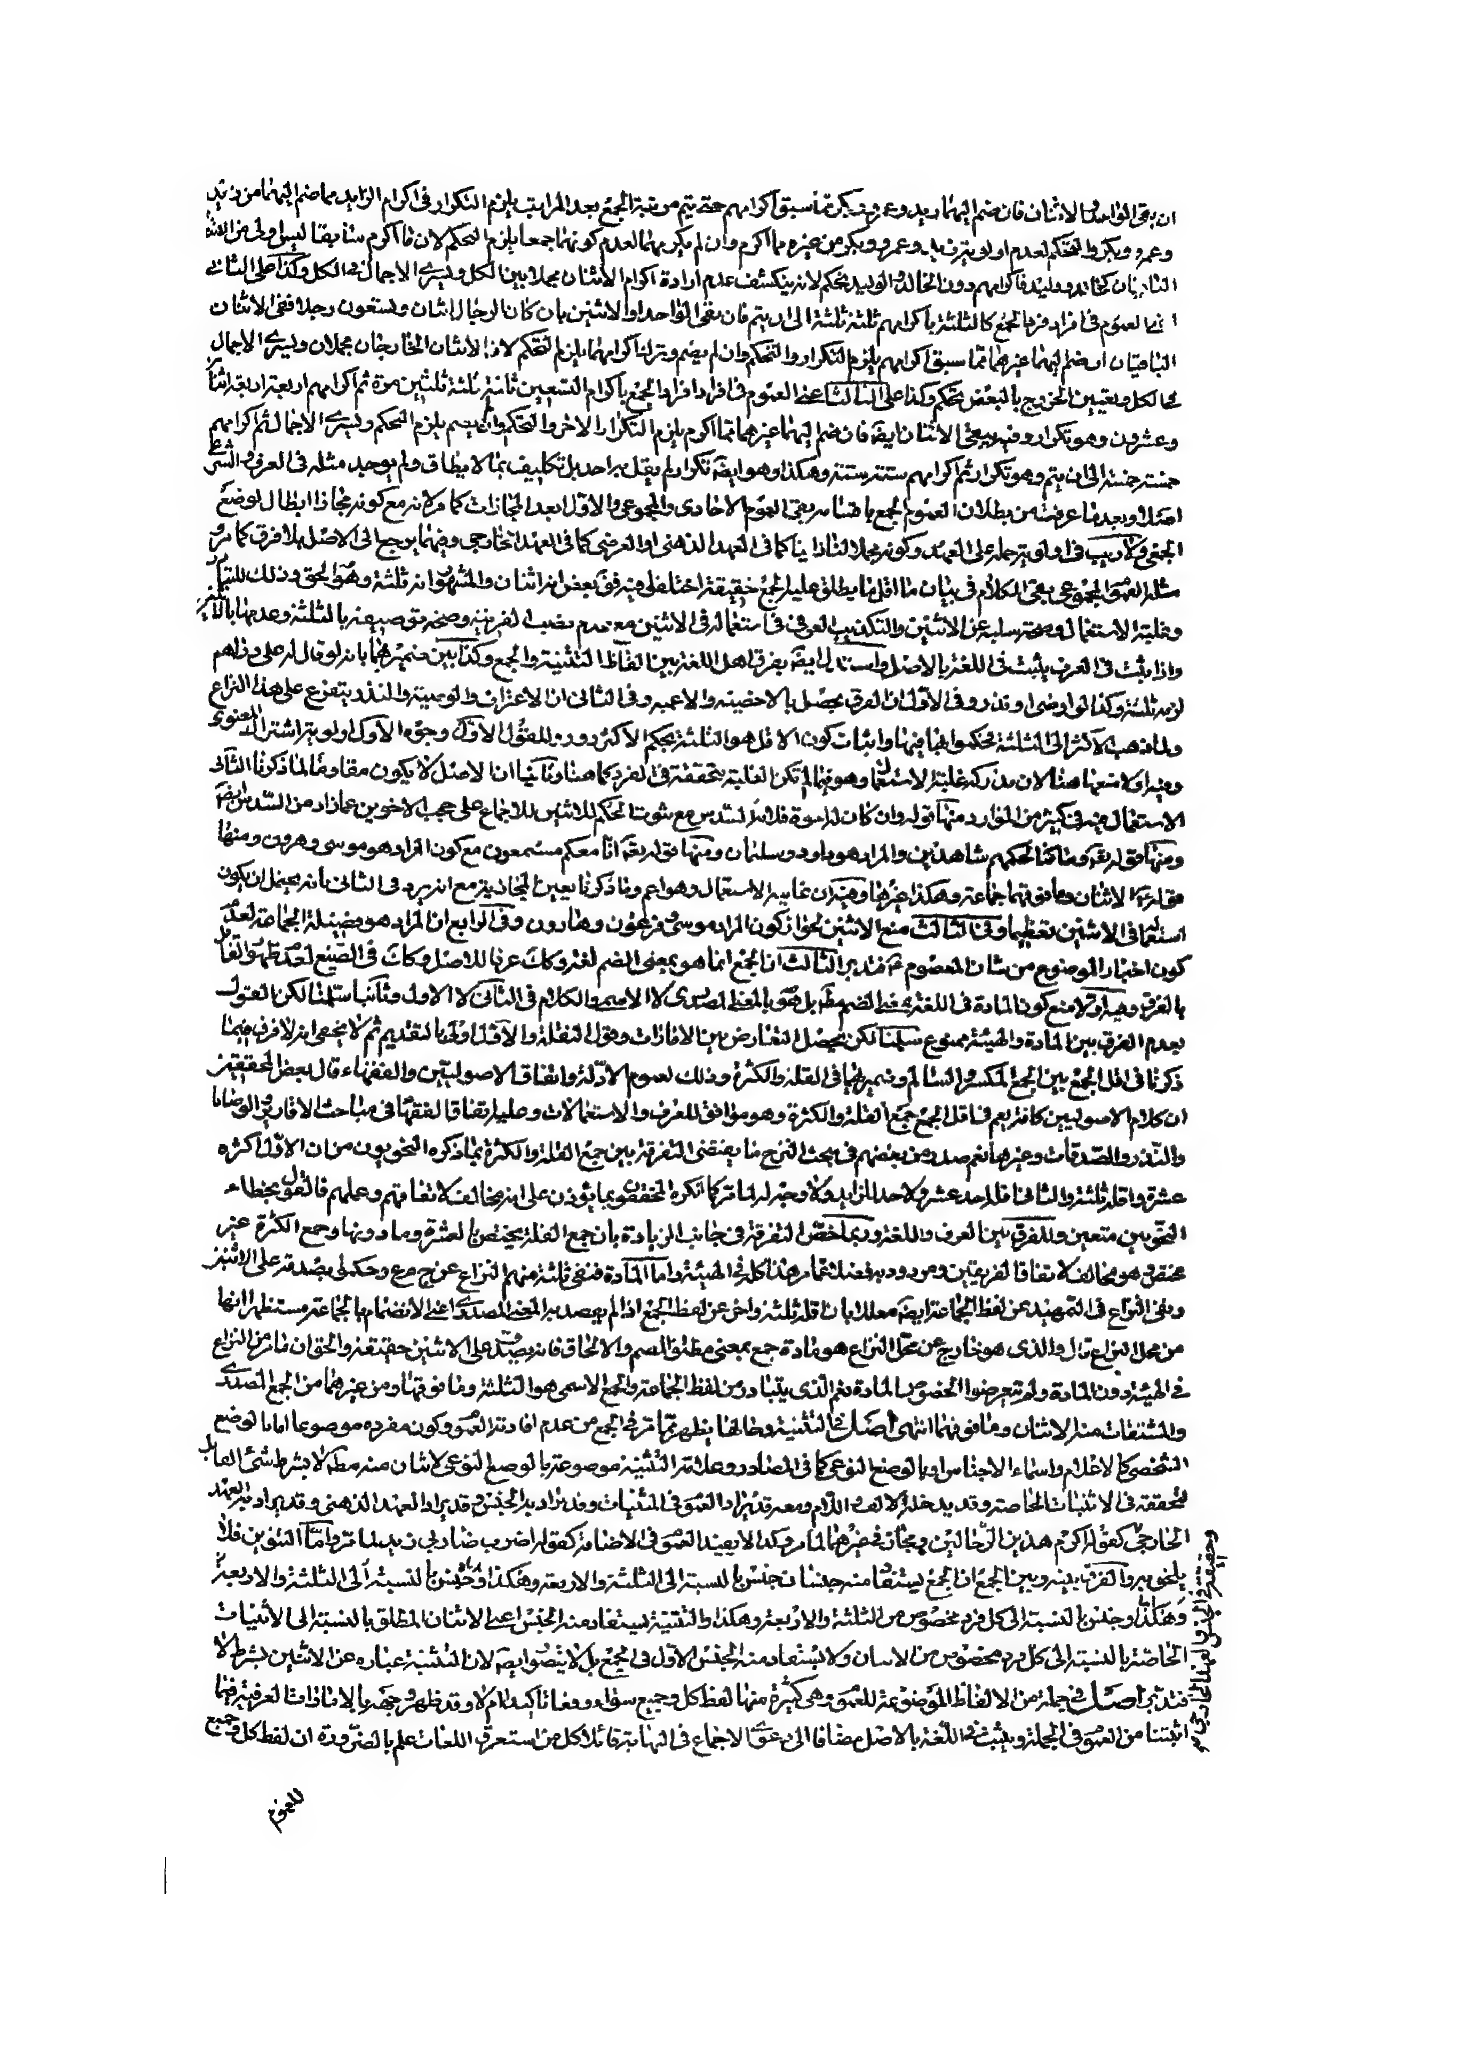 ان بقى الواحد او الاثنان فان ضم اليهما زيد وعمرو وبكر مما سبق اكرامهم حتى يتم مرتبة الجمع بعد المراتب يلزم التكرار فى اكرام الزايد مما ضم اليهما من زيد
وعمرو وبكر والتحكم لعدم اولوية زيد وعمرو وبكر من غيره مما اكرم وان لم يكرمهما لعدم كونهما جمعا يلزم التحكم لان ما اكرم سابقا ليس اولى من الاثنان
كخالد ووليد فاكرامهم دون الخالد والوليد تحكم لانه ينكشف عدم ارادة اكرام الاثنان مجملا بين الكل ويسرى الاجمال فى الكل وكذا على الثانى
العموم فى افراد الجمع كالثلثة باكرامهم ثلثة ثلثة الى ان يتم فان بقى الواحد او الاثنين بان كان الرجال اثنان وتسعون رجلا فبقى الاثنان
الباقيان ان ضم اليهما غيرهما مما سبق اكرامهم يلزم التكرار والتحكم وان لم يضم وترك اكرامهما يلزم التحكم لان الاثنان الخارجان مجملان ويسرى الاجمال
فى الكل وتعيين الخروج بالبعض تحكم وكذا على الثالث اعنى العموم فى افراد افراد الجمع باكرام التسعين ثلثة ثلثة ثلثين مرة ثم اكرامهم اربعة اربعة
وعشرون وهو تكرار وفيه يبقى الاثنان ايضا فان ضم اليهما غيرهما مما اكرم يلزم التكرار الاخر والتحكم وان لم يضم يلزم التحكم ويسرى الاجمال ثم اكرامهم
خمسة خمسة الى ان يتم وهو تكرار ثم اكرامهم ستة ستة وهكذا وهو ايضا تكرار لم يقل به احد بل تكليف بما لا يطاق ولم يوجد مثله فى العرف والشرع
اصلا وبعد ما عرفت من بطلان العموم الجمع باقسامه بقى العموم الاحادى والمجموعى والاول ابعد المجازات كما مر لانه مع كونه مجازا ابطال لوضع
الجمع ولا ريب فى اولوية حمله على العهد وكونه مجملا
مثله العموم المجموعى بقى الكلام فى بيان ما اقل ما يطلق عليه الجمع حقيقة اختلف فيه فعن بعض انه اثنان والمشهور انه ثلثة وهو الحق وذلك للتبادر
وغلبة الاستعمال وصحة سلبه عن الاثنين والتكذيب العرفى فى استعماله فى الاثنين مع عدم نصب القرينة وصحة توصيفه بالثلثة وعدمها بالاثنين
واذا ثبت فى العرف يثبت فى اللغة بالاصل واستدل ايضا بفرق اهل اللغة بين الفاظ التثنية والجمع وكذا بين ضميرهما بانه لو قال له على دراهم
لزمه ثلثة وكذا لو اوصى او نذر وفى الاول ان الفرق يحصل بالاخصية والاعمية وفى الثانى ان الاعتراف والوصية والنذر يتفرع على هذا النزاع
ولما ذهب الاكثر الى الثلثة حكموا بها فيها واثبات كون الاقل هو الثلثة بحكم الاكثر دور وللقول الاول وجوه الاول اولوية اشتراك المعنوى
الاستعمال فيه فى كثير من الموارد منها قوله وان كان له اخوة فلامه السدس مع ثبوت الحكم للاثنين للاجماع على حجب الاخوين عما زاد من السدس ايضا
ومنها قوله تعالى وكنا لحكمهم شاهدين والمراد هو داود وسليمان ومنها قوله تعالى انا معكم مستمعون مع كون المراد هو موسى وهرون ومنها
قوله الاثنان وما فوقهما جماعة وهكذا غيرها وفيه ان غايته الاستعمال وهو اعم وما ذكرنا يعين المجازية مع انه يرد فى الثانى بانه يحتمل ان يكون
استعمالها فى الاثنين تعظيما وفى الثالث منع الاثنين لجواز كون المراد موسى وفرعون وهارون وفى الرابع ان المراد هو فضيلة الجماعة لعدم
كون اخبار الموضوع من شان المعصوم فتدبر الثالث ان الجمع انما هو بمعنى الضم لغة وكك عرفا للاصل وكك فى الصيغ لعدم ظهور القائل
بالفرق وفيه اولا منع كون المادة فى اللغة بمعنى الضم مطلقا بل هو بالمعنى المصدرى لا الاسمى والكلام فى الثانى لا الاول وثانيا سلمنا لكن القول
بعدم الفرق بين المادة والهيئة ممنوع سلمنا لكن يحصل التعارض بين الامارات وقول النقلة والاول اولى بالتقديم ثم لا يخفى انه لا فرق فيما
ذكرنا فى اقل الجمع بين الجمع المكسر والسالم وضميرهما فى القلة والكثرة وذلك لعموم الادلة واتفاق الاصوليين والفقهاء قال بعض المحققين
ان كلام الاصوليين كافة يعم فى اقل الجمع جمع القلة والكثرة وهو موافق للعرف والاستعمالات وعليه اتفاق الفقهاء فى مباحث الاقارير والوصايا
والنذر والصدقات وغيرها نعم صدر من بعضهم فى بحث النزح ما يقتضى التفرقة بين جمع القلة والكثرة بما ذكره النحويون من ان الاول اكثره
عشرة واقله ثلثة والثانى اقله احد عشر ولا حد لزايده ولا وجه له لما مر كما انكره المحققون بما يؤذن على انه مخالف لاتفاقهم وعملهم فالقول بخطاء
النحويين متعين وللفرق بين العرف واللغة وربما خص التفرقة فى جانب الزيادة بان جمع القلة يختص بالعشرة وما دونها وجمع الكثرة غير
مختص وهو مخالف لاتفاق الفريقين ومردود به فضلا عما مر هذا كله فى الهيئة واما المادة فنفى ثلثة منهم النزاع عن ج م ع وحكموا بصدقه على الاثنين
ونفى النزاع فى التمهيد عن لفظ الجماعة ايضا معللا بان اقله ثلثة واخر عن لفظ الجمع اذا لم يقصد به المعنى المصدرى اعنى الانضمام بالجماعة مستظهرا انها
من محل النزاع قال والذى هو خارج عن محل النزاع هو مادة جمع بمعنى مطلق الضم والالحاق فانه يصدق على الاثنين حقيقة والحق ان ما مر النزاع
فى الهيئة دون المادة ولم يتعرضوا الخصوص بالمادة نعم الذى يتبادر من لفظ الجماعة والجمع الاسمى هو الثلثة وما فوقها ومن غيرهما من الجمع المصدرى
والمشتقات منه الاثنان وما فوقهما انتهى اصل فى التثنية وحالها يظهر مما مر فى الجمع من عدم افادته العموم وكون مفرده موضوعا اما بالوضع
الشخصى كالاعلام واسماء الاجناس او بالوضع النوعى كما فى المصادر وعلامة التثنية موضوعة بالوضع النوعى لاثنان منه مطلقا لا بشرط شئ القابل
لتحققه فى الاثنينات الخاصة وقد يدخله الالف واللام ومعه قد يراد العموم فى المثنيات وقد يراد به الجنس وقد يراد العهد الذهنى وقد يراد به العهد
الخارجى كقوله اكرم هذين الرجالين ومجاز فى غيرهما لما مر وكذا لا يفيد العموم فى الاضافة كقوله اضرب ضاربى زيد لما مر واما التنوين فلا
يلحق به والفرق بينه وبين الجمع ان الجمع يستفاد منه جنسان جنس بالنسبة الى الثلثة والاربعة وهكذا وجنس بالنسبة الى الثلثة والاربعة
وهكذا وجنس بالنسبة الى كل فرد مخصوص من الثلثة والاربعة وهكذا والتثنية يستفاد منه الجنس اعنى الاثنان المطلق بالنسبة الى الاثنينات
الخاصة بالنسبة الى كل فرد مخصوص من الاثنان ولا يستفاد منه الجنس الاول فى الجمع بل لا يتصور ايضا لان التثنية عبارة عن الاثنين بشرط لا
فتدبر اصل فى جملة من الالفاظ الموضوعة للعموم وهى كثيرة منها لفظ كل وجميع سواء وقعا تاكيدا ام لا وقد ظهر وجهه بالامارات العرفية فيما
اثبتنا من العموم فى الجملة ويثبت فى اللغة بالاصل مضافا الى دعوى الاجماع فى النهاية قائلا كل من استعرف اللغات علم بالضرورة ان لفظ كل وجميع
للعموم
وحقيقة فى الجنس والعهد الخارجى